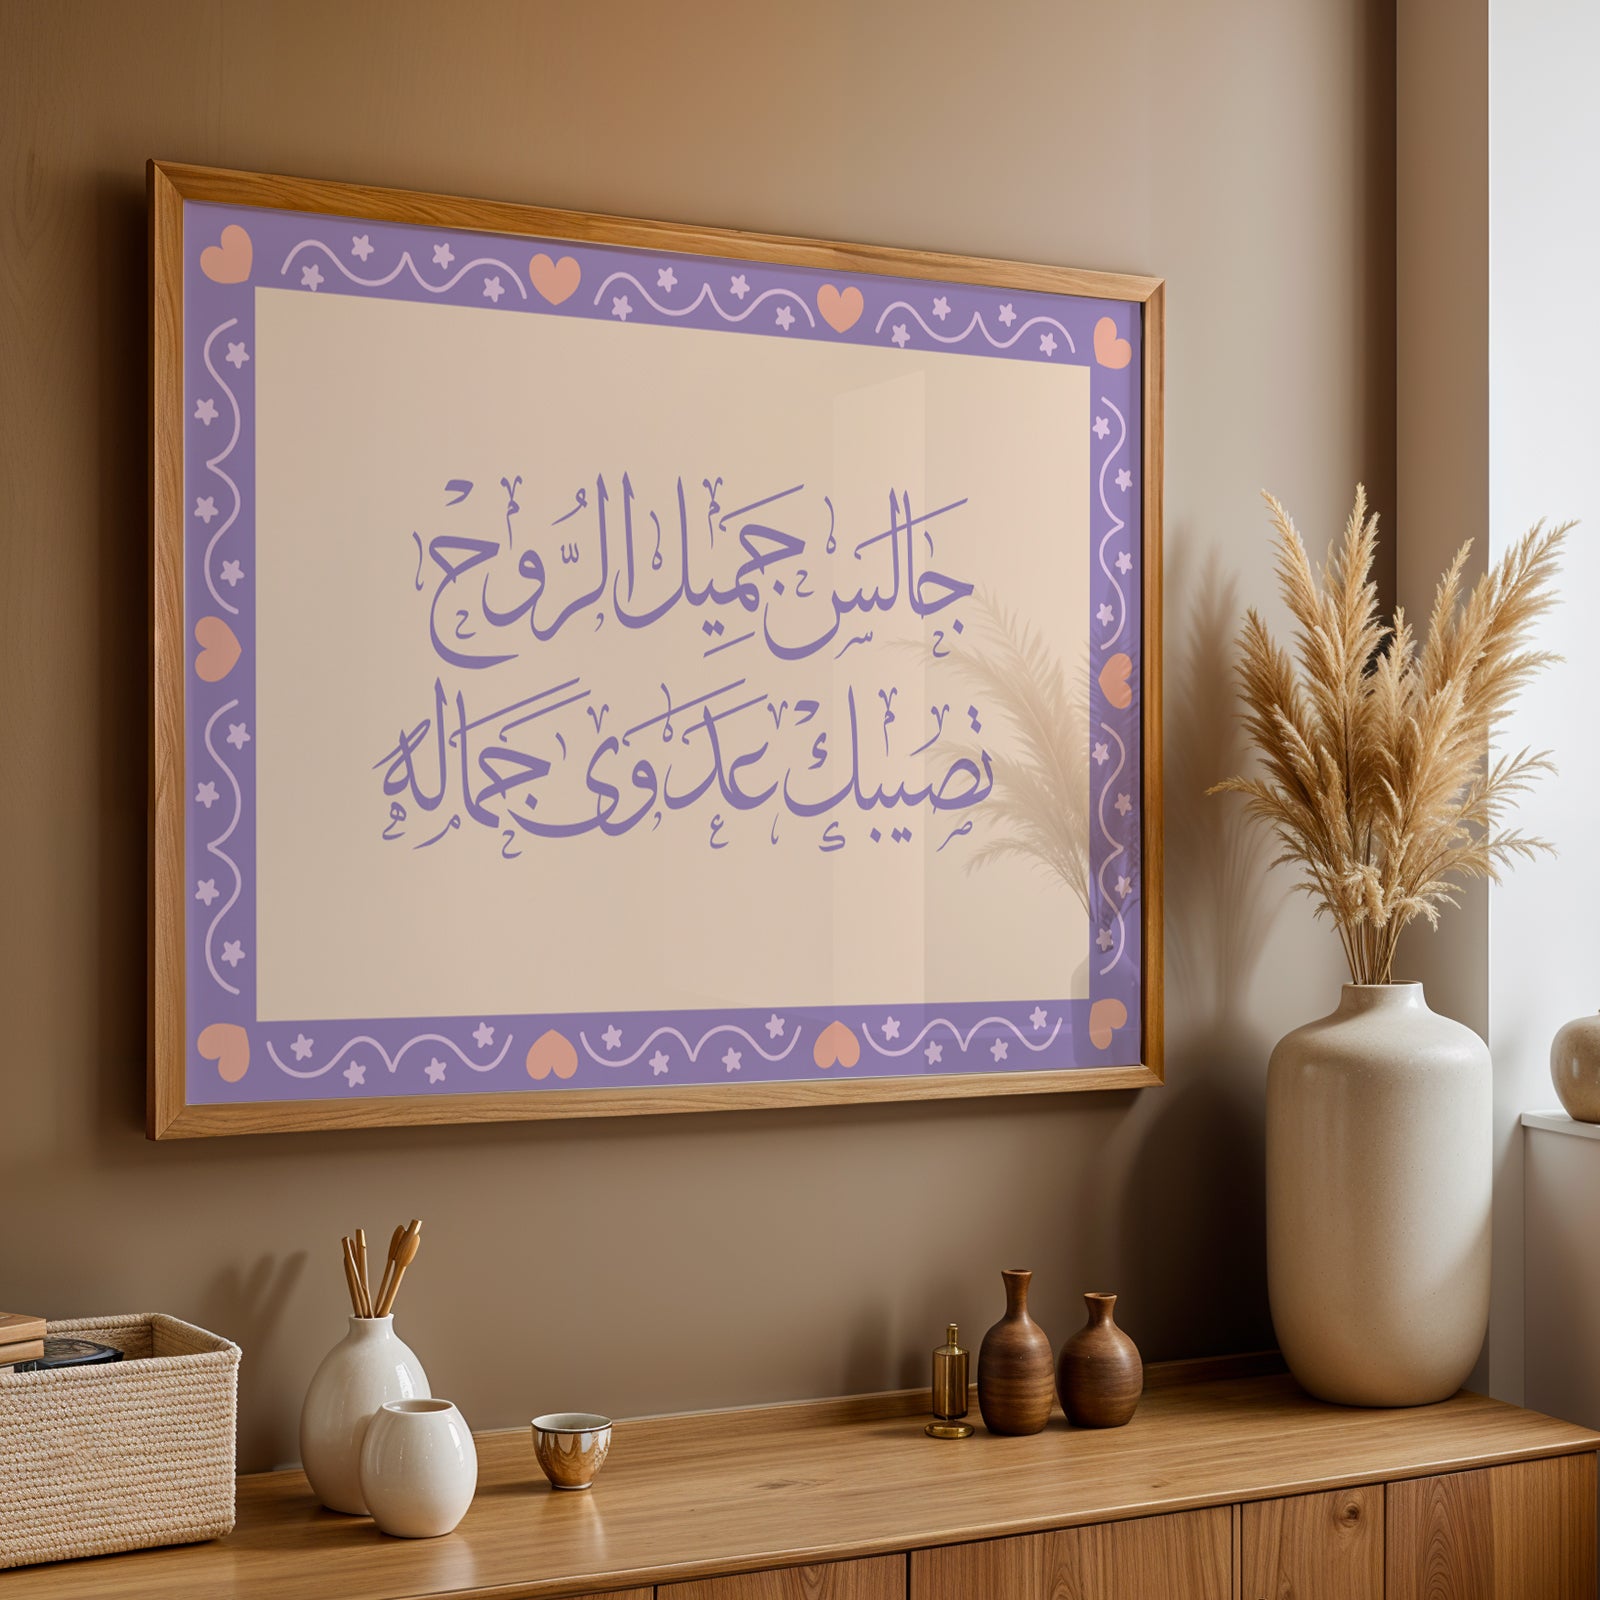 جالس جميل الرّوح
تصيبك عدوى جماله